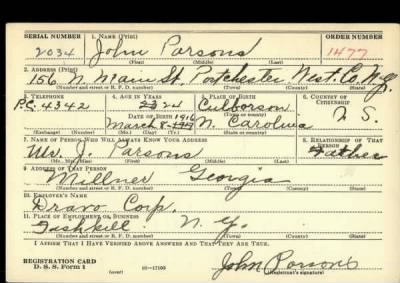 SERIAL NUMBER 1. NAME (Print) ORDER NUMBER
2034 John Parsons 1477
(First) (Middle) (Last)
2. ADDRESS (Print)
156 N. Main St. Portchester West. Co. N.Y.
(Number and street or R. F. D. number) (Town) (County) (State)
3. TELEPHONE 4. AGE IN YEARS 5. PLACE OF BIRTH 6. COUNTRY OF CITIZENSHIP
P.C. 4342 23 24 Culborson
DATE OF BIRTH (Town or county) U. S.
March 8- 1916 N. Carolina
(Exchange) (Number) (Mo.) (Day) (Yr.) (State or country)
7. NAME OF PERSON WHO WILL ALWAYS KNOW YOUR ADDRESS 8. RELATIONSHIP OF THAT PERSON
Parsons Father
(Mr., Mrs., Miss) (First) (Middle) (Last)
9. ADDRESS OF THAT PERSON
Millner Georgia
(Number and street or R. F. D. number) (Town) (County) (State)
10. EMPLOYER'S NAME
Dravo Corp.
11. PLACE OF EMPLOYMENT OR BUSINESS
Fishkill N. Y.
(Number and street or R. F. D. number) (Town) (County) (State)
I AFFIRM THAT I HAVE VERIFIED ABOVE ANSWERS AND THAT THEY ARE TRUE.
REGISTRATION CARD
D. S. S. Form 1 (over) 16—17105 John Parsons
(Registrant's signature)